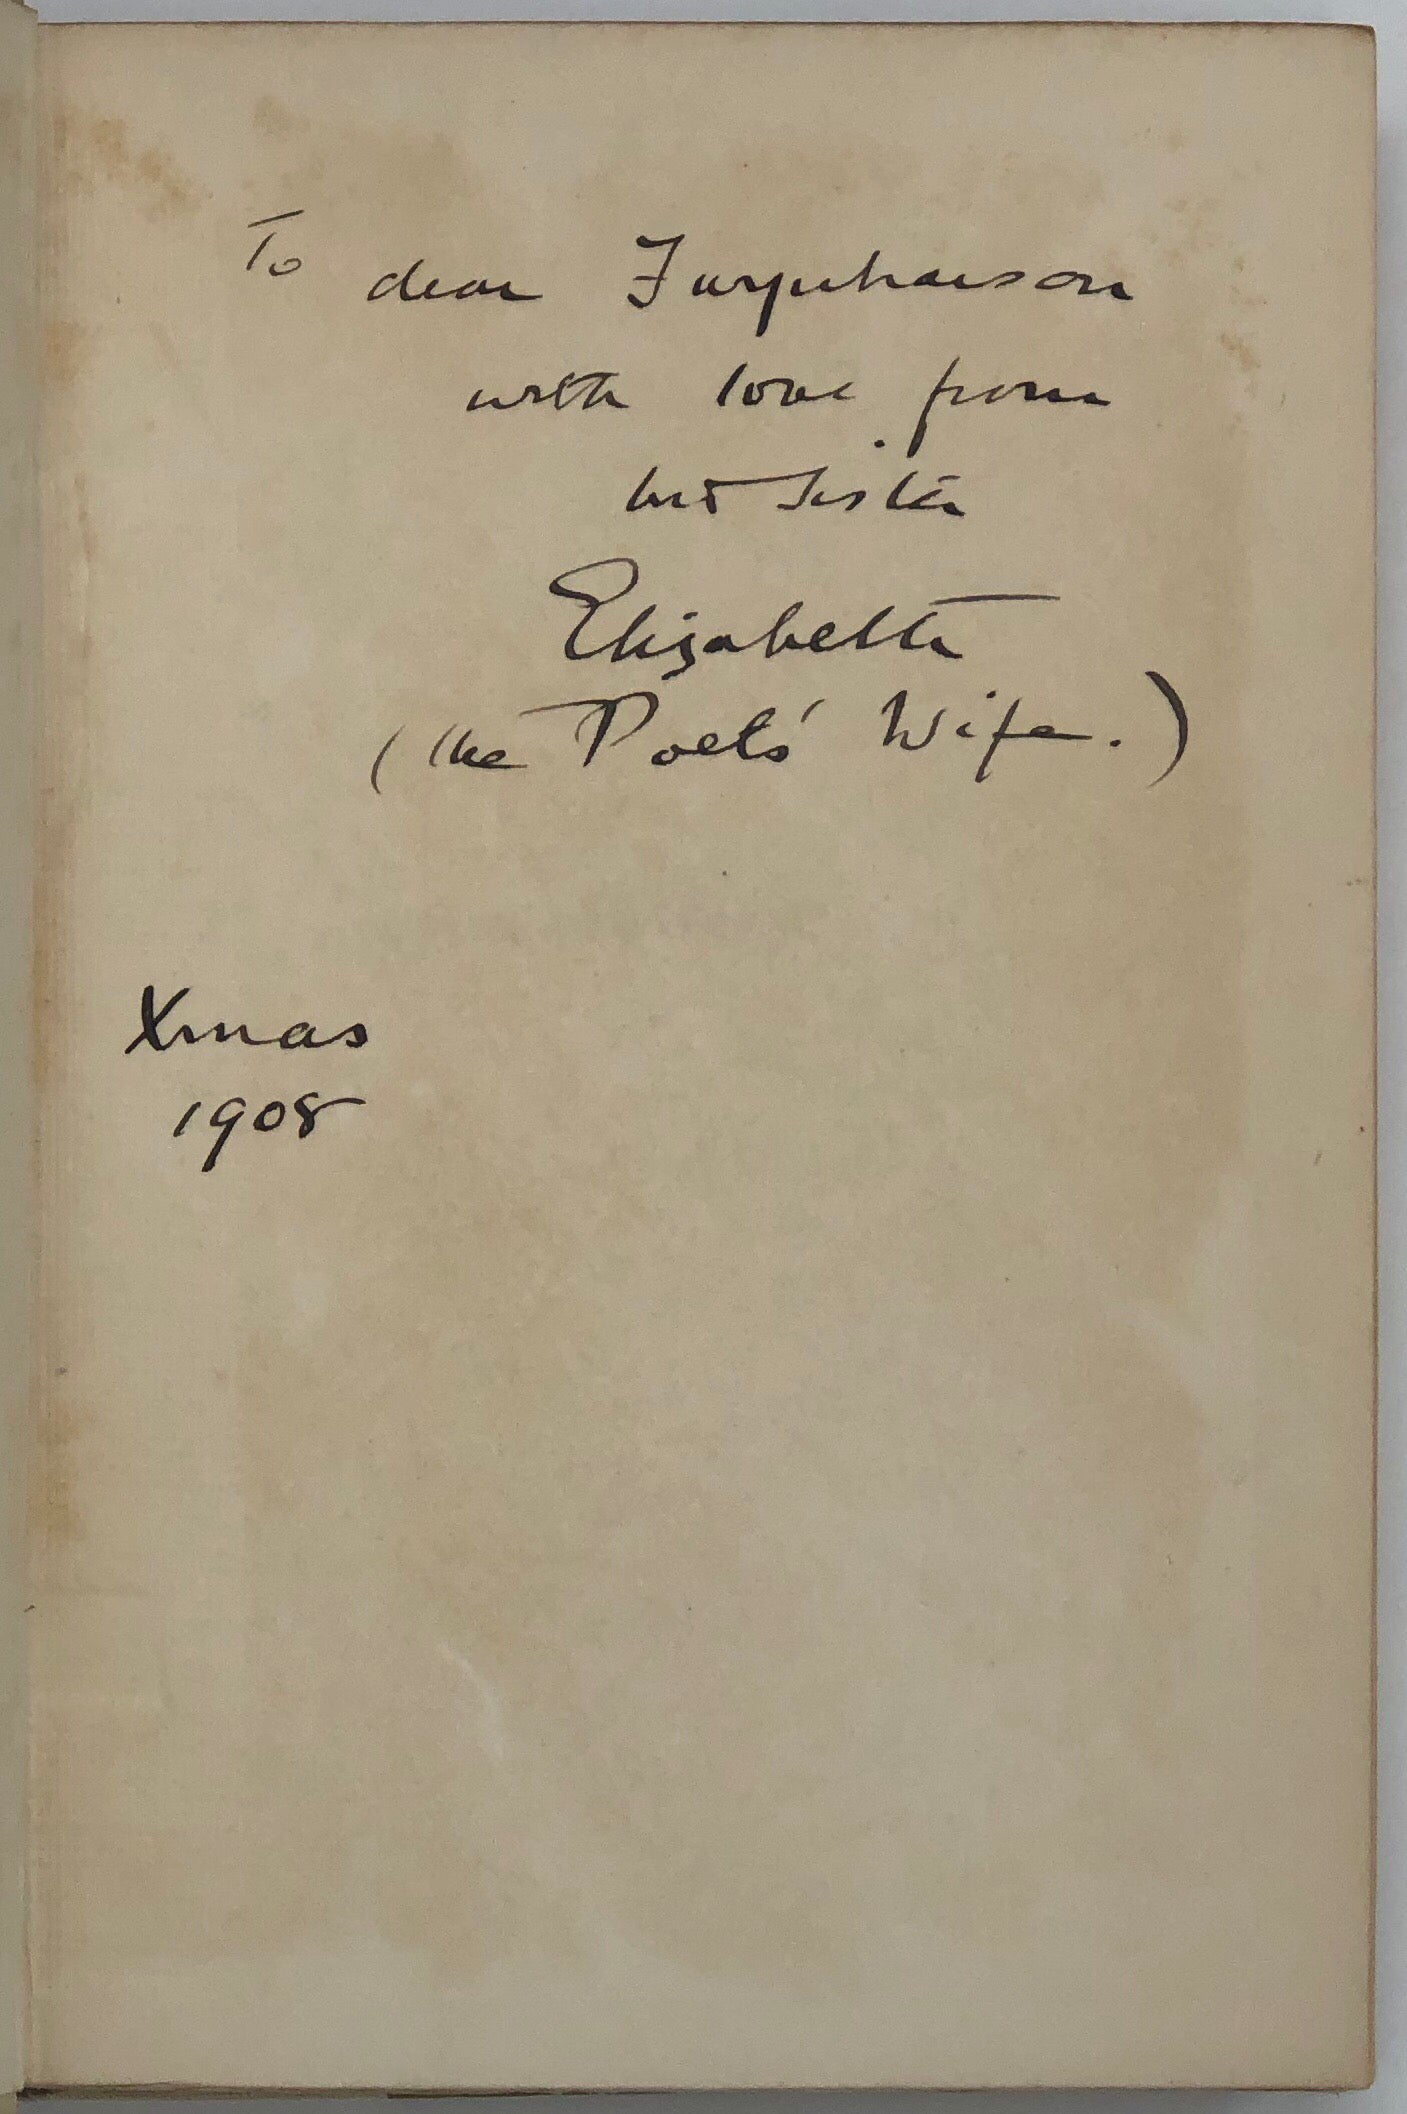 To dear Farquharson
with love from
his sister
Elizabeth
(the Poets' Wife.)
Xmas
1908